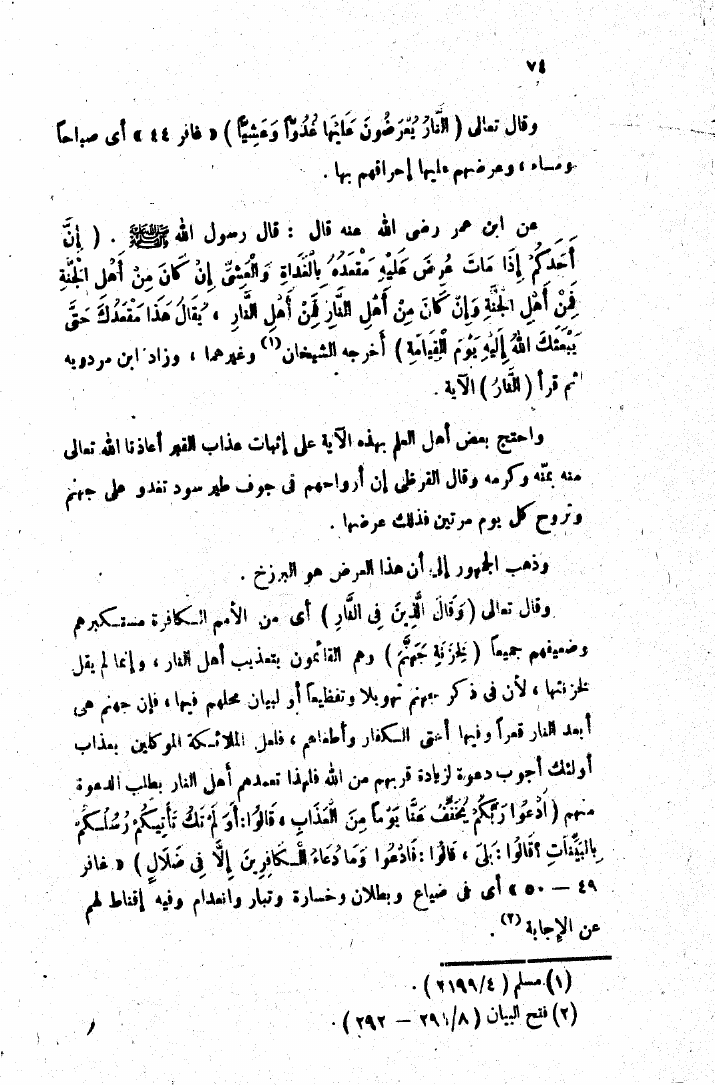 ٧٤
وقال تعالى ( النَّارُ يُعْرَضُونَ عَلَيْهَا غُدُوًّا وَعَشِيًّا ) « غافر ٤٤ » أى صباحاً
ومساء ، وعرضهم عليها إحراقهم بها .
عن ابن عمر رضى الله عنه قال : قال رسول الله ﷺ . ( إِنَّ
أَحَدَكُمْ إِذَا مَاتَ عُرِضَ عَلَيْهِ مَقْعَدُهُ بِالْغَدَاةِ وَالْعَشِىِّ إِنْ كَانَ مِنْ أَهْلِ الْجَنَّةِ
فَمِنْ أَهْلِ الْجَنَّةِ وَإِنْ كَانَ مِنْ أَهْلِ النَّارِ فَمِنْ أَهْلِ النَّارِ ، يُقَالُ هَذَا مَقْعَدُكَ حَتَّى
يَبْعَثَكَ اللهُ إِلَيْهِ يَوْمَ الْقِيَامَةِ ) أخرجه الشيخان (١) وغيرهما ، وزاد ابن مردويه
ثم قرأ ( النَّارُ ) الآية .
واحتج بعض أهل العلم بهذه الآية على إثبات عذاب القبر أعاذنا الله تعالى
منه بمنّه وكرمه وقال القرظى إن أرواحهم فى جوف طير سود تغدو على جهنم
وتروح كل يوم مرتين فذلك عرضها .
وذهب الجمهور إلى أن هذا العرض هو البرزخ .
وقال تعالى ( وَقَالَ الَّذِينَ فِى النَّارِ ) أى من الأمم الكافرة مستكبرهم
وضعيفهم جميعاً ( لِخَزَنَةِ جَهَنَّمَ ) وهم القائمون بتعذيب أهل النار ، وإنما لم يقل
لخزنتها ، لأن فى ذكر جهنم تهويلا وتفظيعاً أو لبيان محلهم فيها ، فإن جهنم هى
أبعد النار قعراً وفيها أعتى الكفار وأطغاهم ، فلعل الملائكة الموكلين بعذاب
أولئك أجوب دعوة لزيادة قربهم من الله فلهذا تعمدهم أهل النار بطلب الدعوة
منهم ( ادْعُوا رَبَّكُمْ يُخَفِّفْ عَنَّا يَوْماً مِنَ الْعَذَابِ ، قَالُوا : أَوَ لَمْ تَكُ تَأْتِيكُمْ رُسُلُكُمْ
بِالبَيِّنَاتِ ؟ قَالُوا : بَلَى ، قَالُوا : فَادْعُوا وَمَا دُعَاءُ الْكَافِرِينَ إِلَّا فِى ضَلَالٍ ) « غافر
٤٩ — ٥٠ » أى فى ضياع وبطلان وخسارة وتبار وانعدام وفيه إقناط لهم
عن الإجابة (٢) .
(١) مسلم ( ٢١٩٩/٤ ) .
(٢) فتح البيان ( ٢٩١/٨ — ٢٩٢ ) .